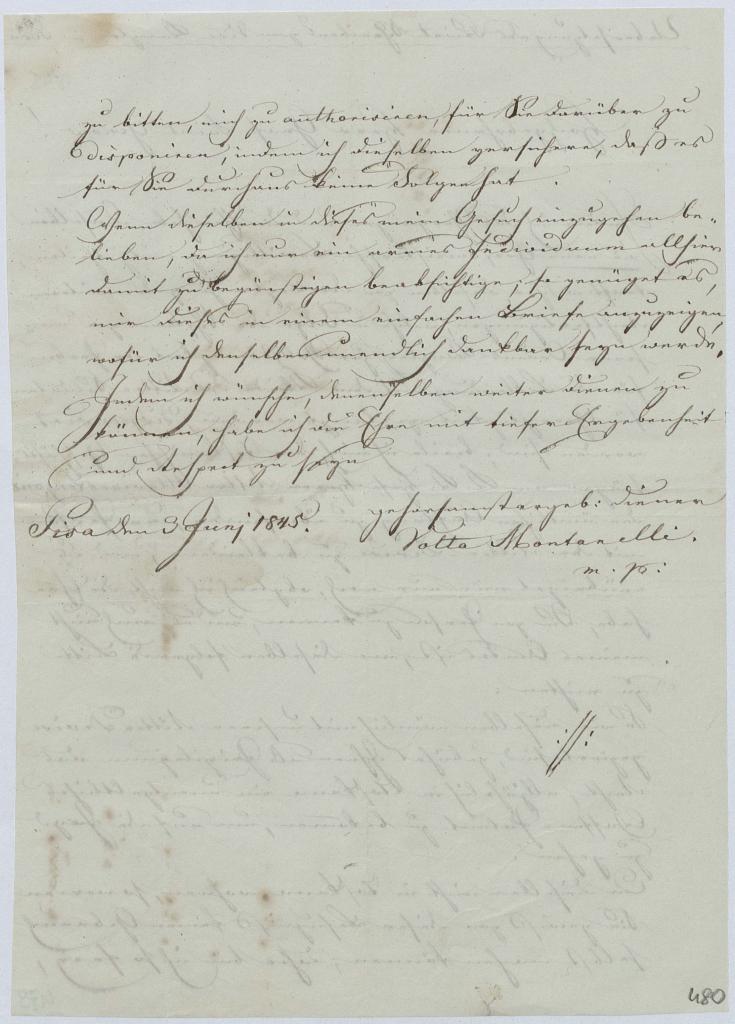 zu bitten, mich zu authorisiren, für Sie darüber zu
disponiren, indem ich dieselben versichere, daß es
für Sie durchaus keine Folgen hat.
Wenn dieselben in dieses mein Gesuch einzugehen be„
lieben, da ich nur ein armes Individuum allhier
damit zu begünstigen beabsichtige, so genüget es,
mir dieses in einem einfachen Briefe anzuzeigen,
wofür ich denselben unendlich dankbar seyn werde.
Indem ich wünsche, denenselben weiter dienen zu
können, habe ich die Ehre mit tiefer Ergebenheit
und Respect zu seyn
gehorsamst ergeb: Diener
Pisa den 3 Junj 1845.
Votta Montanelli.
m. p:
://:
480